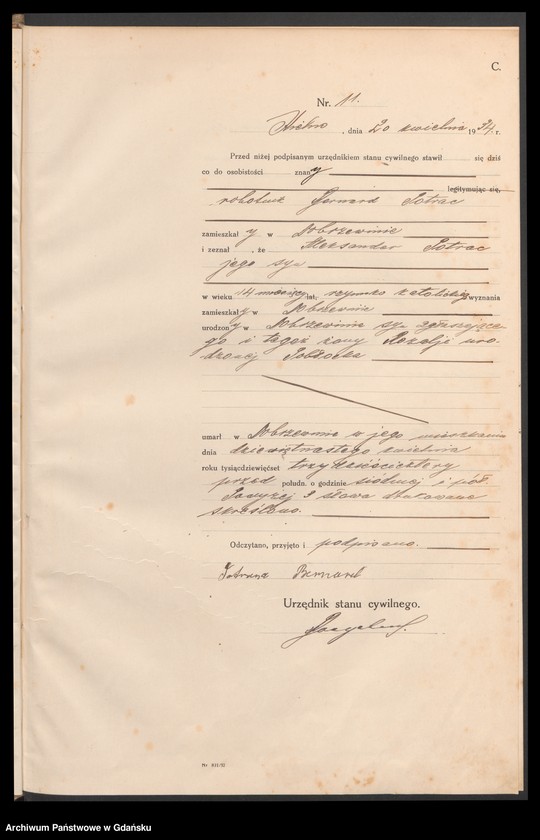 C.
Nr. 11.
, dnia 20 kwietnia 1934. r.
Przed niżej podpisanym urzędnikiem stanu cywilnego stawił się dziś
co do osobistości znany
legitymując się,
robotnik Bernard Potrac
zamieszkały w Dobrzewinie
i zeznał , że Aleksander Potrac
jego syn
w wieku 14 miesięcy lat, rzymsko katolickiego wyznania
zamieszkały w Dobrzewinie
urodzony w Dobrzewinie syn zgłaszające-
go i tegoż żony Rozalji uro-
dzonej
umarł w Dobrzewinie w jego mieszkaniu
dnia dziewiętnastego kwietnia
roku tysiącdziewięćset trzydzieścicztery
przed połudn. o godzinie siódmej i pół
Powyżej 3 słowa drukowane
skreślono.
Odczytano, przyjęto i podpisano.
Bernard
Urzędnik stanu cywilnego.
Archiwum Państwowe w Gdańsku